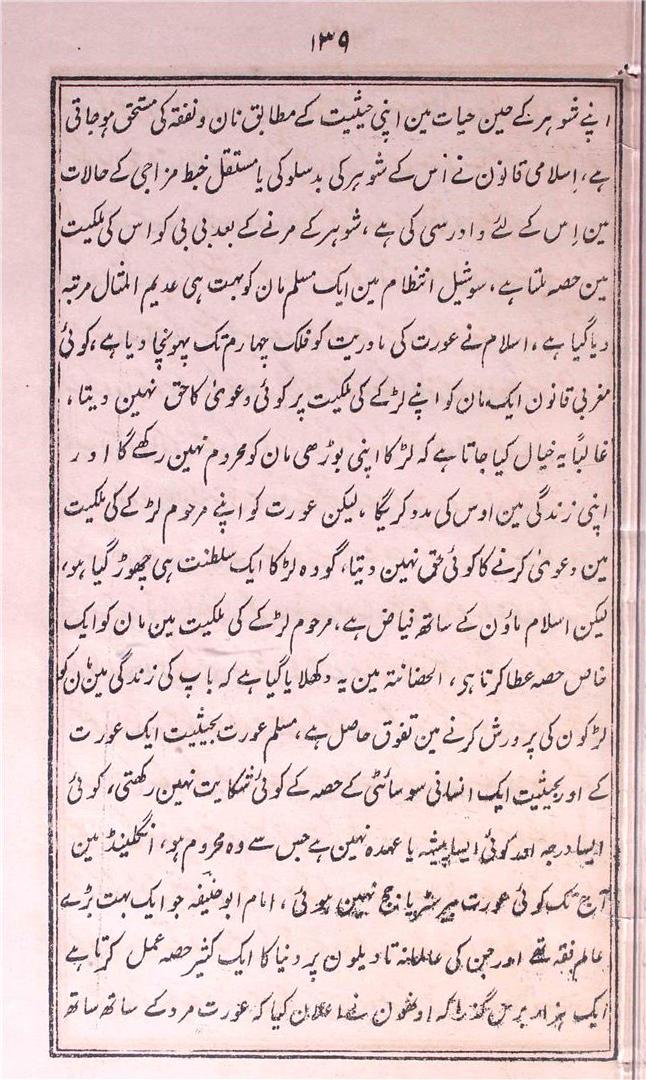 ۱۳۹
اپنے شوہر کے حین حیات مین اپنی حیثیت کے مطابق نان و نفقہ کی مستحق ہوجاتی
ہے، اِسلامی قانون نے اُس کے شوہر کی بدسلوکی یا مستقل خبط مزاجی کے حالات
مین اِس کے لئے دادرسی کی ہے، شوہر کے مرنے کے بعد بی بی کو اس کی ملکیت
مین حصہ ملتا ہے، سوشیل انتظام مین ایک مسلم مان کو بہت ہی عدیم المثال مرتبہ
دیا گیا ہے، اسلام نے عورت کی مادریت کو فلک چہارم تک پہونچا دیا ہے، کوئی
مغربی قانون ایک مان کو اپنے لڑکے کی ملکیت پر کوئی دعویٰ کا حق نہین دیتا،
غالباً یہ خیال کیا جاتا ہے کہ لڑکا اپنی بوڑھی مان کو محروم نہین رکھے گا اور
اپنی زندگی مین اوس کی مدد کریگا، لیکن عورت کو اپنے مرحوم لڑکے کی ملکیت
مین دعویٰ کرنے کا کوئی حق نہین دیتا، گو وہ لڑکا ایک سلطنت ہی چھوڑ گیا ہو،
لیکن اسلام ماؤن کے ساتھ فیاض ہے، مرحوم لڑکے کی ملکیت مین مان کو ایک
خاص حصہ عطا کرتا ہی، الحضانتہ مین یہ دکھلا یا گیا ہے کہ باپ کی زندگی مین مان کو
لڑکون کی پرورش کرنے مین تفوق حاصل ہے، مسلم عورت بحیثیت ایک عورت
کے اور بحیثیت ایک انسانی سوسائٹی کے حصہ کے کوئی شکایت نہین رکھتی، کوئی
ایسا درجہ اور کوئی ایسا پیشہ یا عہدہ نہین ہے جس سے وہ محروم ہو، انگلینڈ مین
آج تک کوئی عورت بیرسٹر یا جج نہین ہوئی، امام ابو حنیفہ جو ایک بہت بڑے
عالم فقہ تھے اور جن کی عالمانہ تاویلون پر دنیا کا ایک کثیر حصہ عمل کرتا ہے
ایک ہزار برس گذرا کہ اونھون نے اعلان کیا کہ عورت مرد کے ساتھ ساتھ